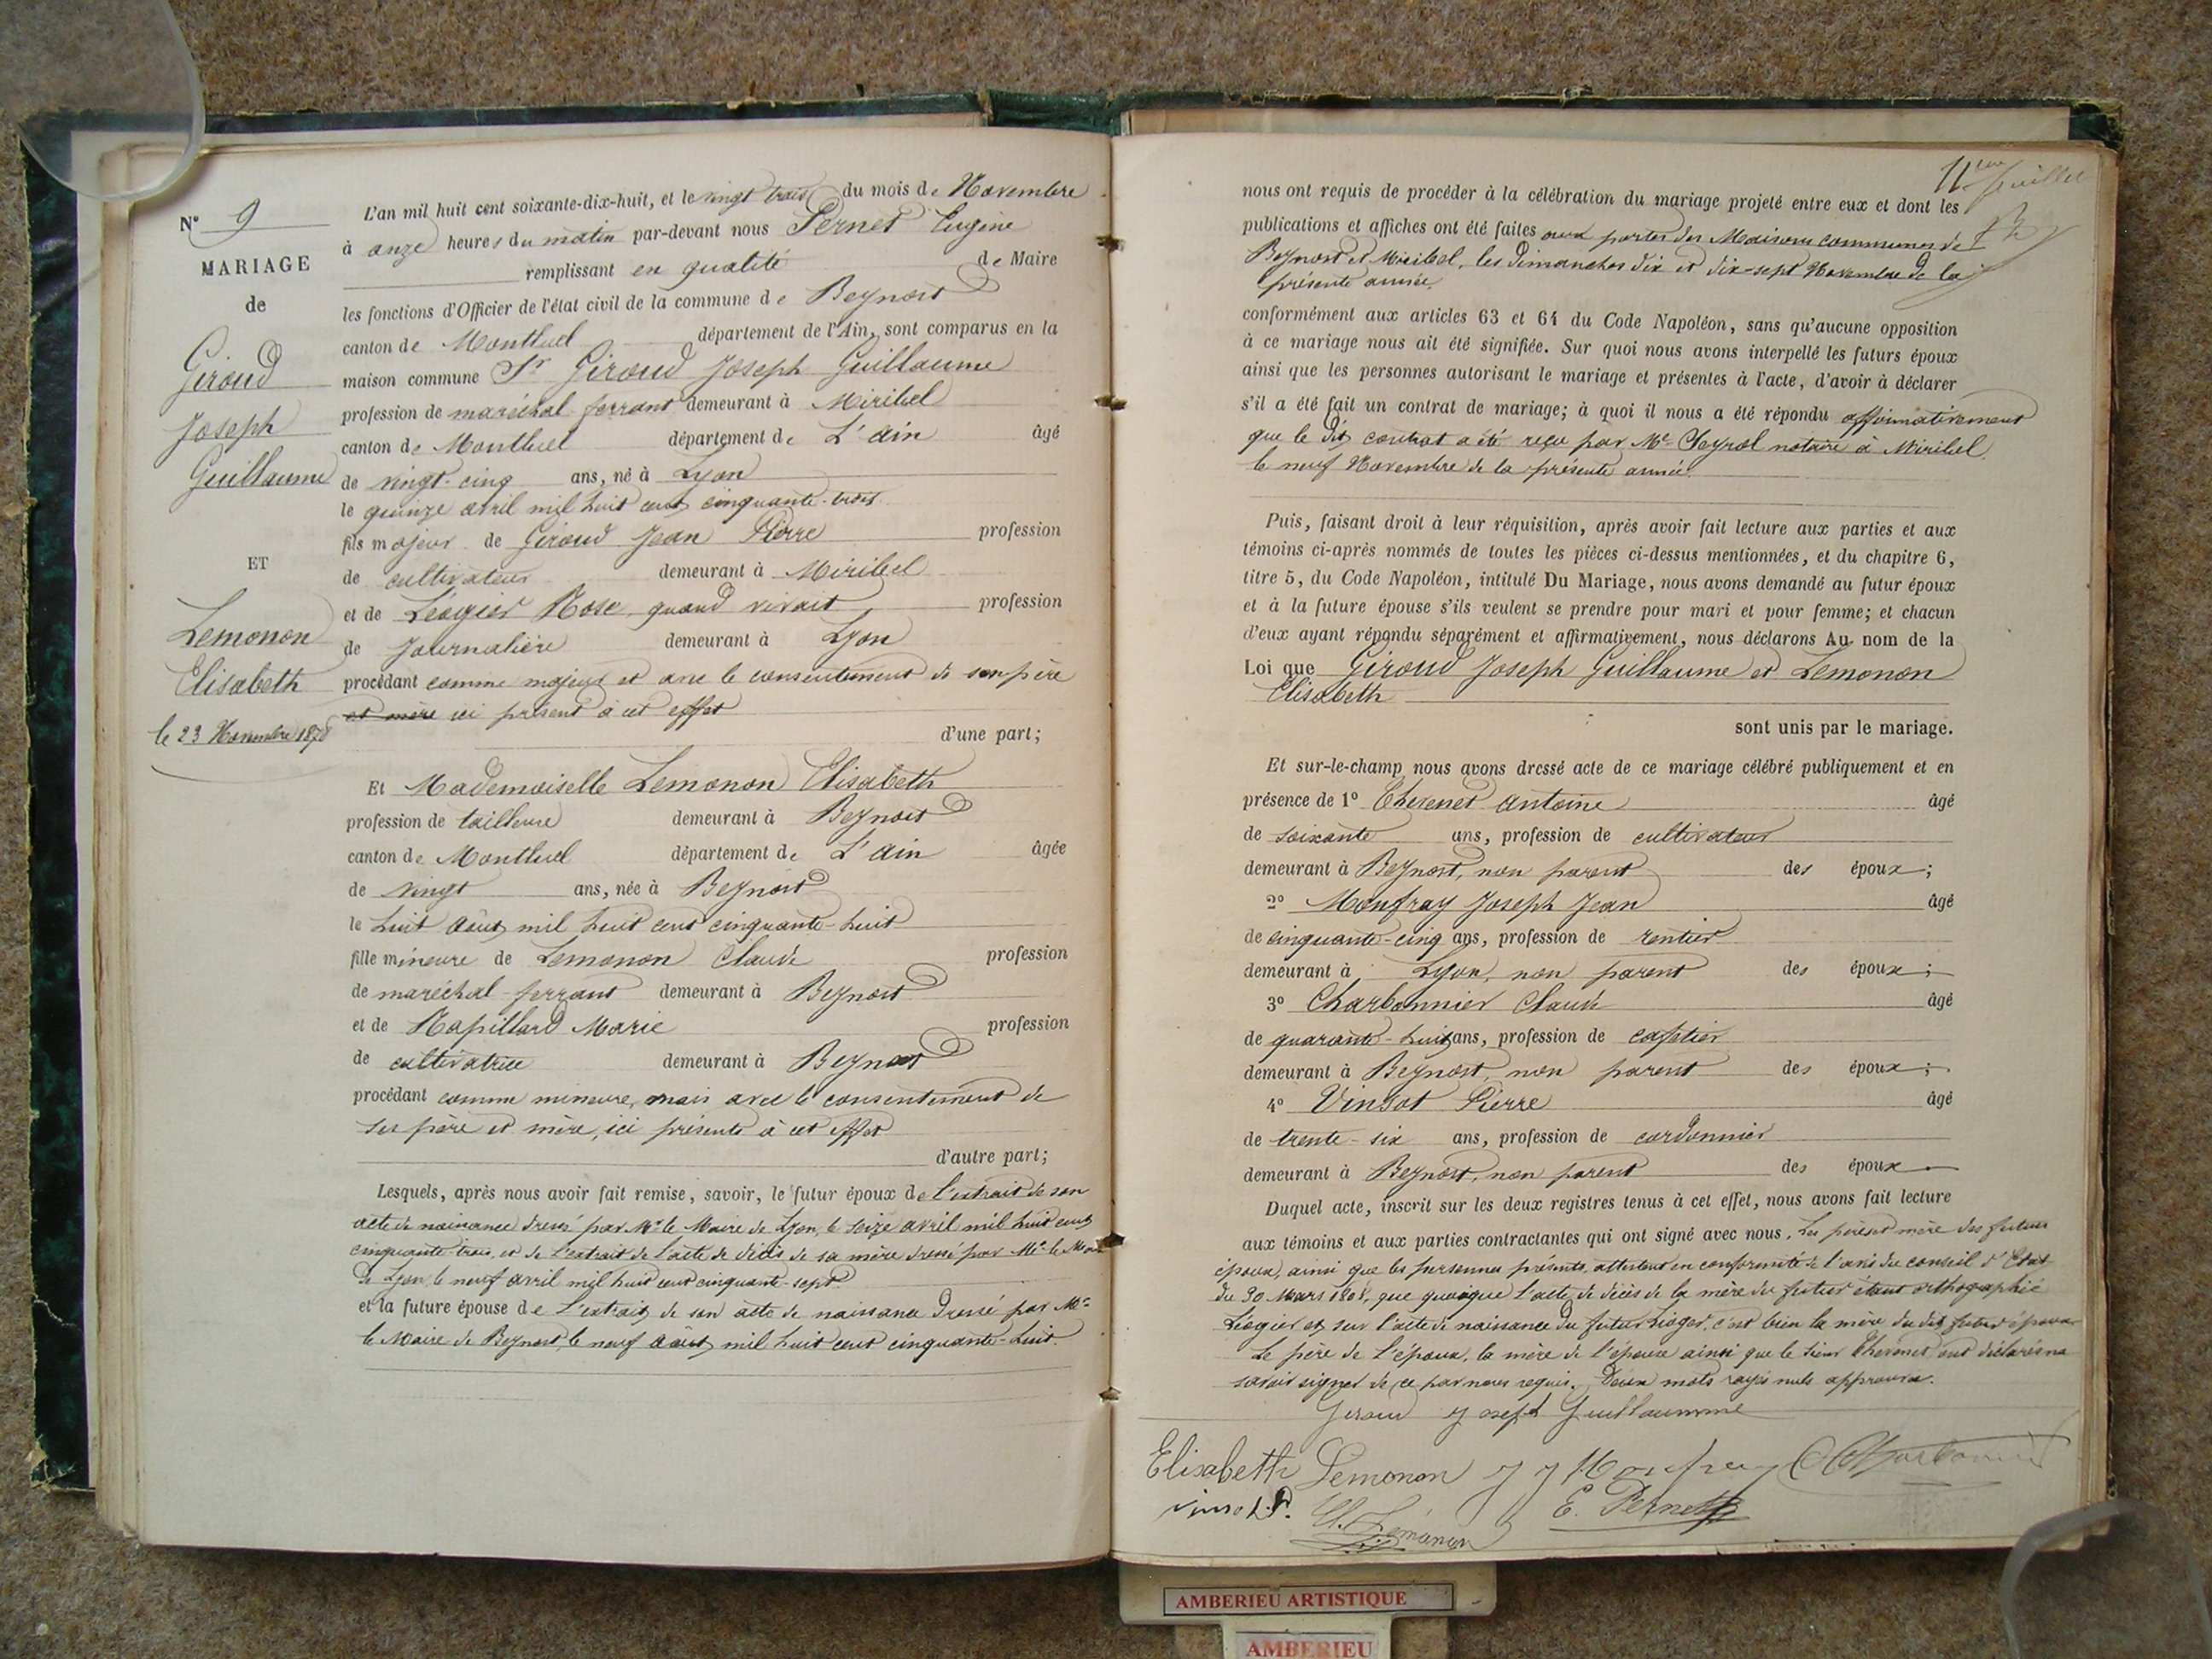 N° 9
MARIAGE
de
Giroud
Joseph
Guillaume
ET
Lemonon
Elisabeth
le 23 Novembre 1878
L'an mil huit cent soixante-dix-huit, et le vingt trois du mois de Novembre
à onze heures du matin par-devant nous Pernet Eugène
remplissant en qualité de Maire
les fonctions d'Officier de l'état civil de la commune de Beynost
canton de Montluel département de l'Ain, sont comparus en la
maison commune Sr Giroud Joseph Guillaume
profession de maréchal ferrant demeurant à Miribel
canton de Montluel département de L'ain âgé
de vingt-cinq ans, né à Lyon
le quinze avril mil huit cent cinquante-trois
fils majeur de Giroud Jean Pierre profession
de cultivateur demeurant à Miribel
et de Léogier Rose, quand vivait profession
de journalière demeurant à Lyon
procédant comme majeur et avec le consentement de son père
et mère ici présent à cet effet
d'une part;
Et Mademoiselle Lemonon Elisabeth
profession de tailleuse demeurant à Beynost
canton de Montluel département de L'ain âgée
de vingt ans, née à Beynost
le huit août mil huit cent cinquante-huit
fille mineure de Lemonon Claude profession
de maréchal-ferrant demeurant à Beynost
et de Rapillard Marie profession
de cultivatrice demeurant à Beynost
procédant comme mineure, mais avec le consentement de
ses père et mère, ici présents à cet effet
d'autre part;
Lesquels, après nous avoir fait remise, savoir, le futur époux de l'extrait de son
acte de naissance dressé par Mr le Maire de Lyon, le seize avril mil huit cent
cinquante-trois, et de l'extrait de l'acte de décès de sa mère dressé par Mr le Maire
de Lyon, le neuf avril mil huit cent cinquante-sept
et la future épouse de l'extrait de son acte de naissance dressé par Mr
le Maire de Beynost, le neuf août mil huit cent cinquante-huit.
11 feuillet
nous ont requis de procéder à la célébration du mariage projeté entre eux et dont les
publications et affiches ont été faites aux portes des Maisons communes de
Beynost et Miribel, les dimanches dix et dix-sept Novembre de la
présente année,
conformément aux articles 63 et 64 du Code Napoléon, sans qu'aucune opposition
à ce mariage nous ait été signifiée. Sur quoi nous avons interpellé les futurs époux
ainsi que les personnes autorisant le mariage et présentes à l'acte, d'avoir à déclarer
s'il a été fait un contrat de mariage; à quoi il nous a été répondu affirmativement
que le dit contrat a été reçu par Me notaire à Miribel,
le neuf Novembre de la présente année.
Puis, faisant droit à leur réquisition, après avoir fait lecture aux parties et aux
témoins ci-après nommés de toutes les pièces ci-dessus mentionnées, et du chapitre 6,
titre 5, du Code Napoléon, intitulé Du Mariage, nous avons demandé au futur époux
et à la future épouse s'ils veulent se prendre pour mari et pour femme; et chacun
d'eux ayant répondu séparément et affirmativement, nous déclarons Au nom de la
Loi que Giroud Joseph Guillaume et Lemonon
Elisabeth
sont unis par le mariage.
Et sur-le-champ nous avons dressé acte de ce mariage célébré publiquement et en
présence de 1° Chevenet Antoine âgé
de soixante ans, profession de cultivateur
demeurant à Beynost, non parent des époux;
2° Monfray Joseph Jean âgé
de cinquante-cinq ans, profession de rentier
demeurant à Lyon, non parent des époux;
3° Charbonnier Claude âgé
de quarante-huit ans, profession de cafetier
demeurant à Beynost, non parent des époux;
4° Vinsot Pierre âgé
de trente-six ans, profession de cordonnier
demeurant à Beynost, non parent des époux
Duquel acte, inscrit sur les deux registres tenus à cet effet, nous avons fait lecture
aux témoins et aux parties contractantes qui ont signé avec nous. Les père et mère des futurs
époux, ainsi que les personnes présentes, attestent en conformité de l'avis du conseil d'Etat
du 30 Mars 1808, que quoique l'acte de décès de la mère du futur étant orthographié
Liogier et sur l'acte de naissance du futur Lioger, c'est bien la mère du dit futur époux
Le père de l'époux, la mère de l'épouse ainsi que le Sieur Chevenet ont déclaré ne
savoir signer de ce par nous requis. Deux mots rayés nuls approuvés.
Giroud Joseph Guillaumme
Elisabeth Lemonon J J Monfray C Charbonnier
vinsot P. Cl. Lémonon E. Pernet
AMBERIEU ARTISTIQUE
AMBERIEU